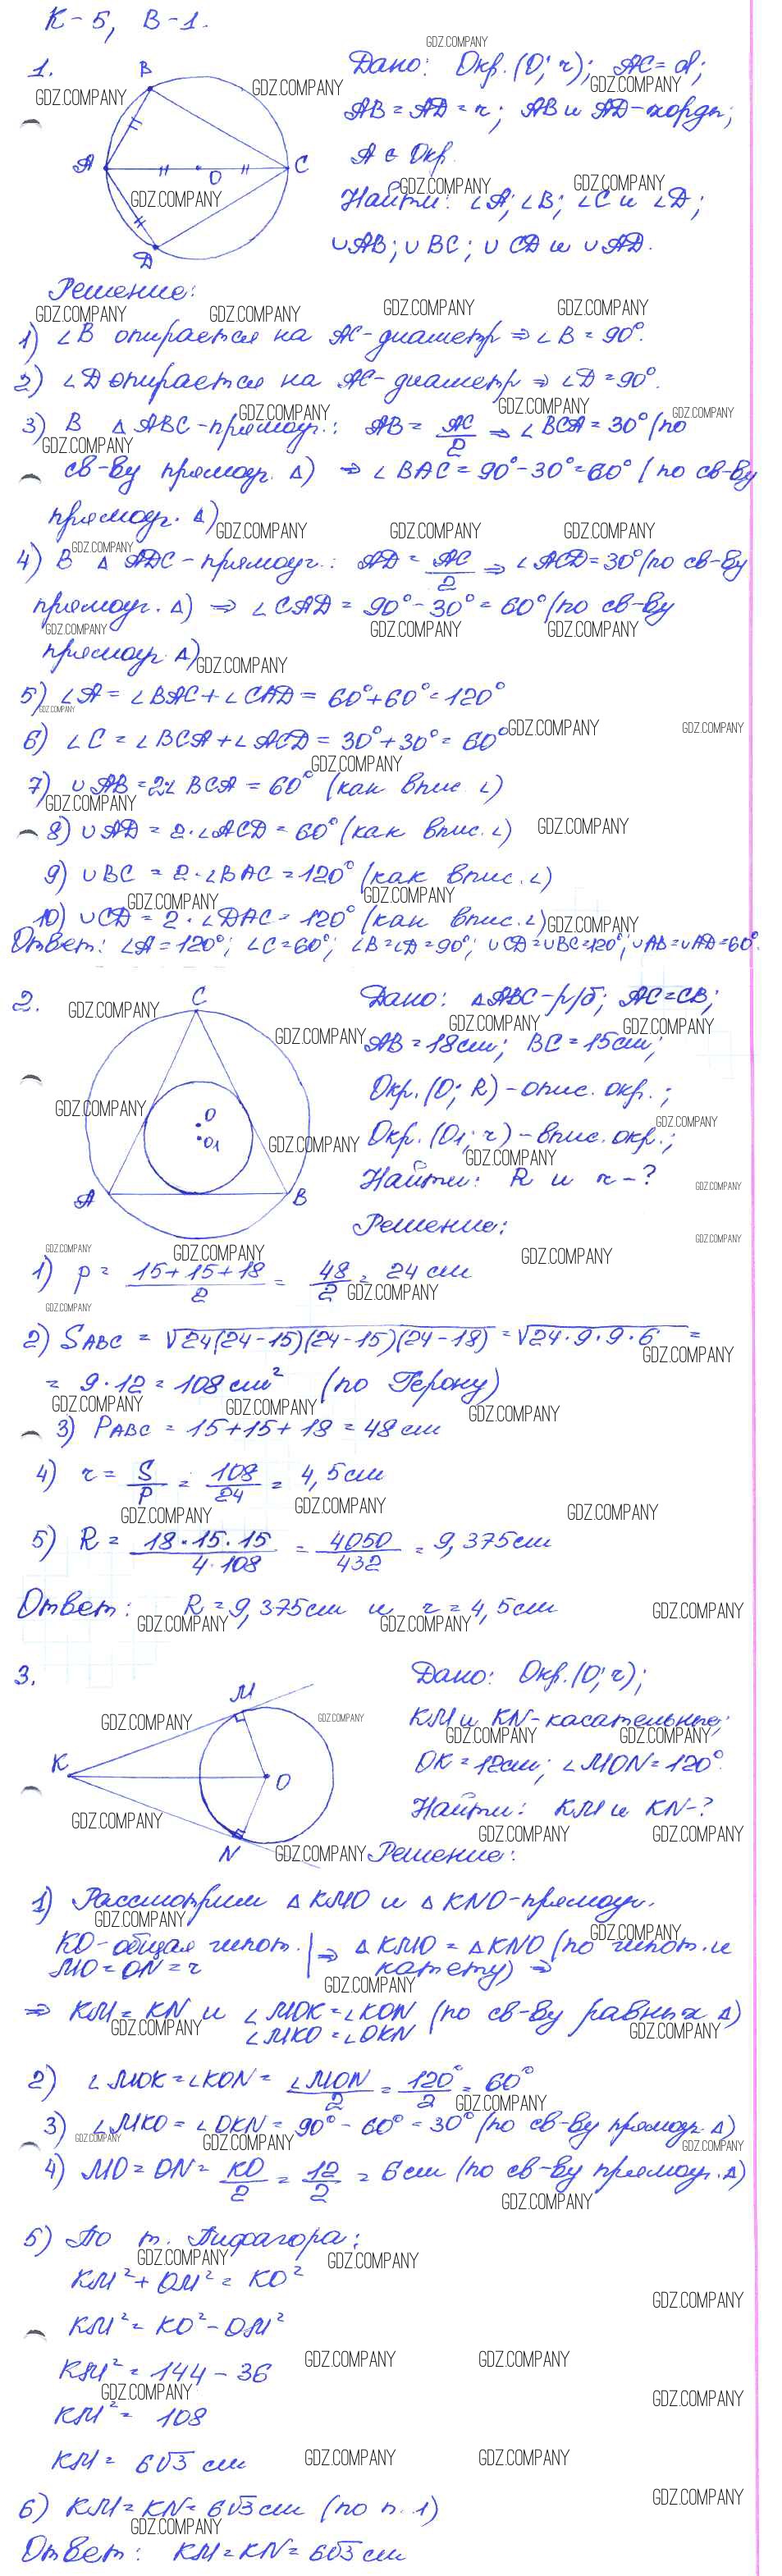 К-5, В-1.
1.
Дано: Окр.(О; r); AC = d;
AB = AD = r; AB и AD-хорды;
A ∈ Окр.
Найти: ∠A; ∠B; ∠C и ∠D;
∪AB; ∪BC; ∪CD и ∪AD.
B
A
O
C
D
Решение:
1) ∠B опирается на AC-диаметр ⇒ ∠B = 90°.
2) ∠D опирается на AC-диаметр ⇒ ∠D = 90°.
3) В △ABC-прямоуг.: AB = AC/2 ⇒ ∠BCA = 30° (по
св-ву прямоуг. △) ⇒ ∠BAC = 90° - 30° = 60° (по св-ву
прямоуг. △)
4) В △ADC-прямоуг.: AD = AC/2 ⇒ ∠ACD = 30° (по св-ву
прямоуг. △) ⇒ ∠CAD = 90° - 30° = 60° (по св-ву
прямоуг △)
5) ∠A = ∠BAC + ∠CAD = 60° + 60° = 120°
6) ∠C = ∠BCA + ∠ACD = 30° + 30° = 60°
7) ∪AB = 2∠BCA = 60° (как впис. ∠)
8) ∪AD = 2·∠ACD = 60° (как впис. ∠)
9) ∪BC = 2·∠BAC = 120° (как впис. ∠)
10) ∪CD = 2·∠DAC = 120° (как впис. ∠)
Ответ: ∠A = 120°; ∠C = 60°; ∠B = ∠D = 90°; ∪CD = ∪BC = 120°; ∪AB = ∪AD = 60°.
2.
Дано: △ABC-р/б; AC = CB;
AB = 18 см; BC = 15 см;
Окр.(O; R) - опис. окр.;
Окр.(O1; r) - впис. окр.;
Найти: R и r - ?
C
O
O1
A
B
Решение:
1) p = (15+15+18)/2 = 48/2 = 24 см
2) SABC = √24(24-15)(24-15)(24-18) = √24·9·9·6 =
= 9·12 = 108 см² (по Герону)
3) PABC = 15+15+18 = 48 см
4) r = S/p = 108/24 = 4,5 см
5) R = 18·15·15/4·108 = 4050/432 = 9,375 см
Ответ: R = 9,375 см и r = 4,5 см
3.
Дано: Окр.(O; r);
KM и KN-касательные;
OK = 12 см; ∠MON = 120°.
Найти: KM и KN-?
M
K
O
N
Решение:
1) Рассмотрим △KMO и △KNO-прямоуг.
KO-общая гипот. | ⇒ △KMO = △KNO (по гипот. и
MO = ON = r | катету) ⇒
⇒ KM = KN и ∠MOK = ∠KON (по св-ву равных △)
∠MKO = ∠OKN
2) ∠MOK = ∠KON = ∠MON/2 = 120°/2 = 60°
3) ∠MKO = ∠OKN = 90° - 60° = 30° (по св-ву прямоуг. △)
4) MO = ON = KO/2 = 12/2 = 6 см (по св-ву прямоуг. △)
5) По т. Пифагора:
KM² + OM² = KO²
KM² = KO² - OM²
KM² = 144 - 36
KM² = 108
KM = 6√3 см
6) KM = KN = 6√3 см (по п. 1)
Ответ: KM = KN = 6√3 см